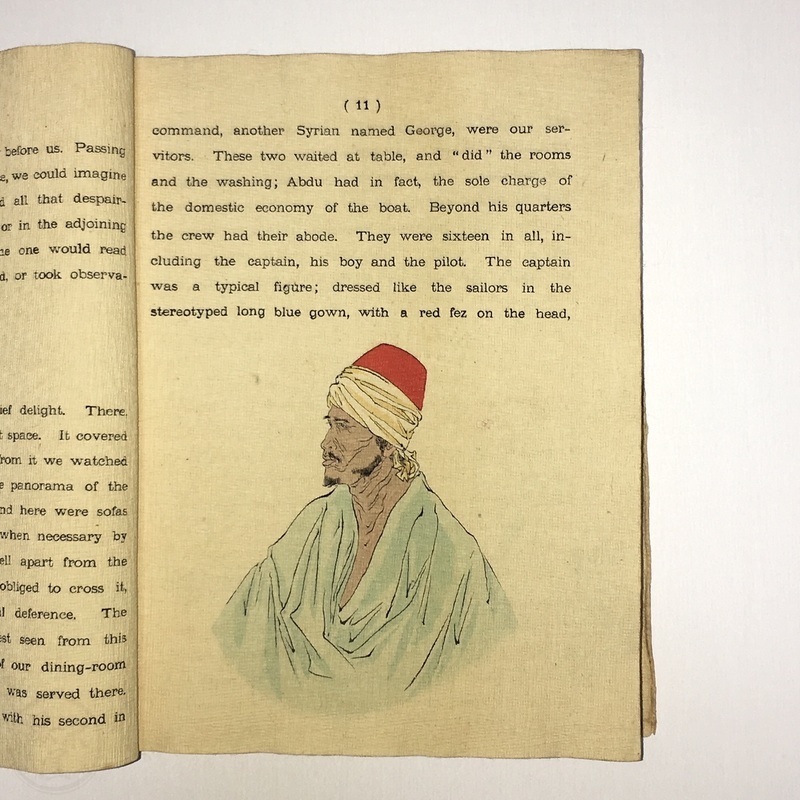 before us. Passing
we could imagine
all that despair-
or in the adjoining
one would read
or took observa-
delight. There,
space. It covered
from it we watched
panorama of the
here were sofas
when necessary by
apart from the
obliged to cross it,
deference. The
seen from this
our dining-room
was served there.
with his second in
( 11 )
command, another Syrian named George, were our ser-
vitors. These two waited at table, and "did" the rooms
and the washing; Abdu had in fact, the sole charge of
the domestic economy of the boat. Beyond his quarters
the crew had their abode. They were sixteen in all, in-
cluding the captain, his boy and the pilot. The captain
was a typical figure; dressed like the sailors in the
stereotyped long blue gown, with a red fez on the head,